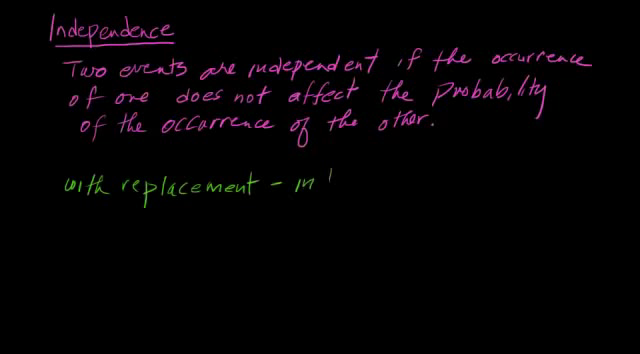 Independence
Two events are independent if the occurrence
of one does not affect the Probability
of the occurrence of the other.
with replacement - in